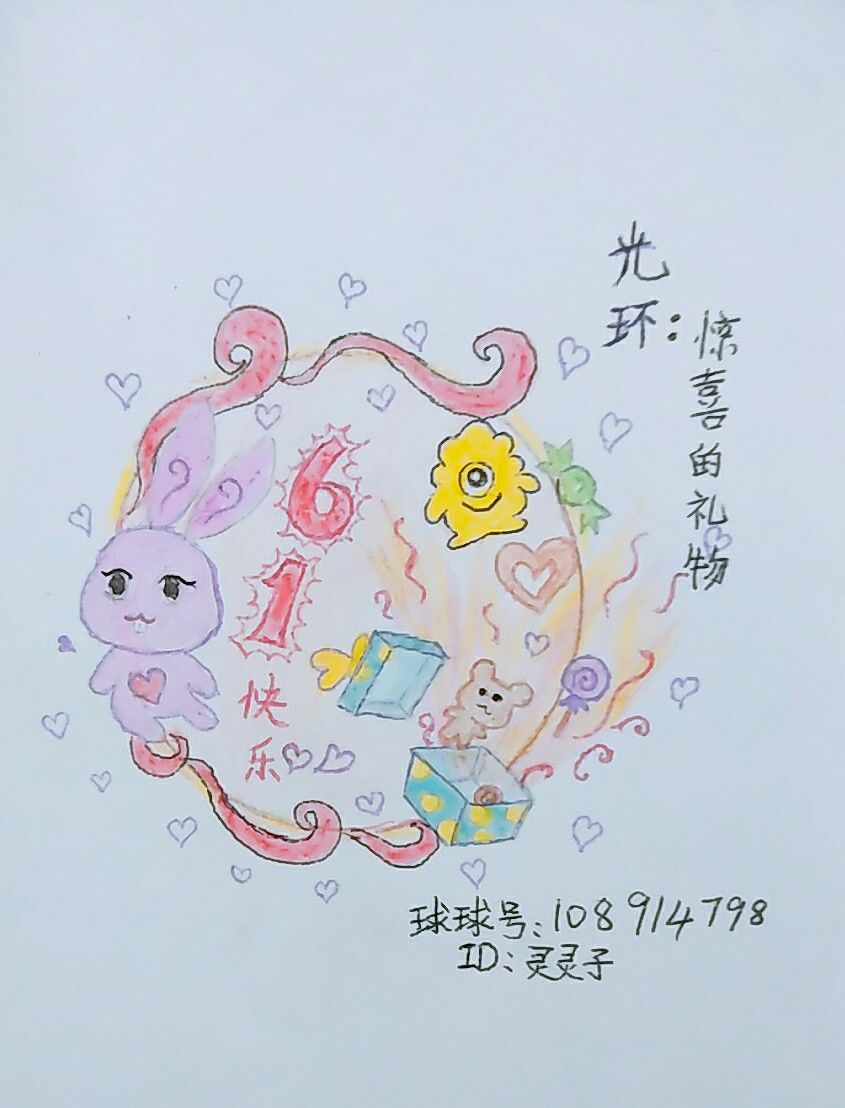 光环：惊喜的礼物
6
1
快乐
球球号：108914798
ID：灵灵子